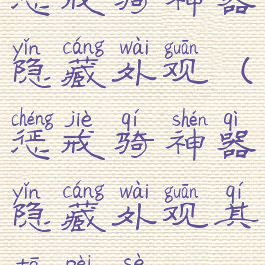 惩戒骑神器
yǐn cáng wài guān
隐藏外观（
chéng jiè qí shén qì
惩戒骑神器
yǐn cáng wài guān qí
隐藏外观其
tā pèi sè